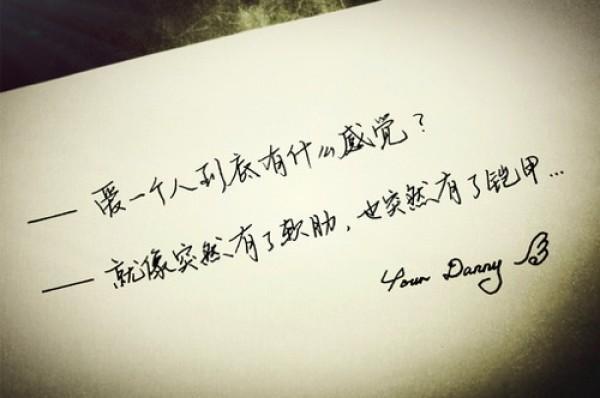 —— 爱一个人到底有什么感觉？
—— 就像突然有了软肋，也突然有了铠甲...
Your Danny